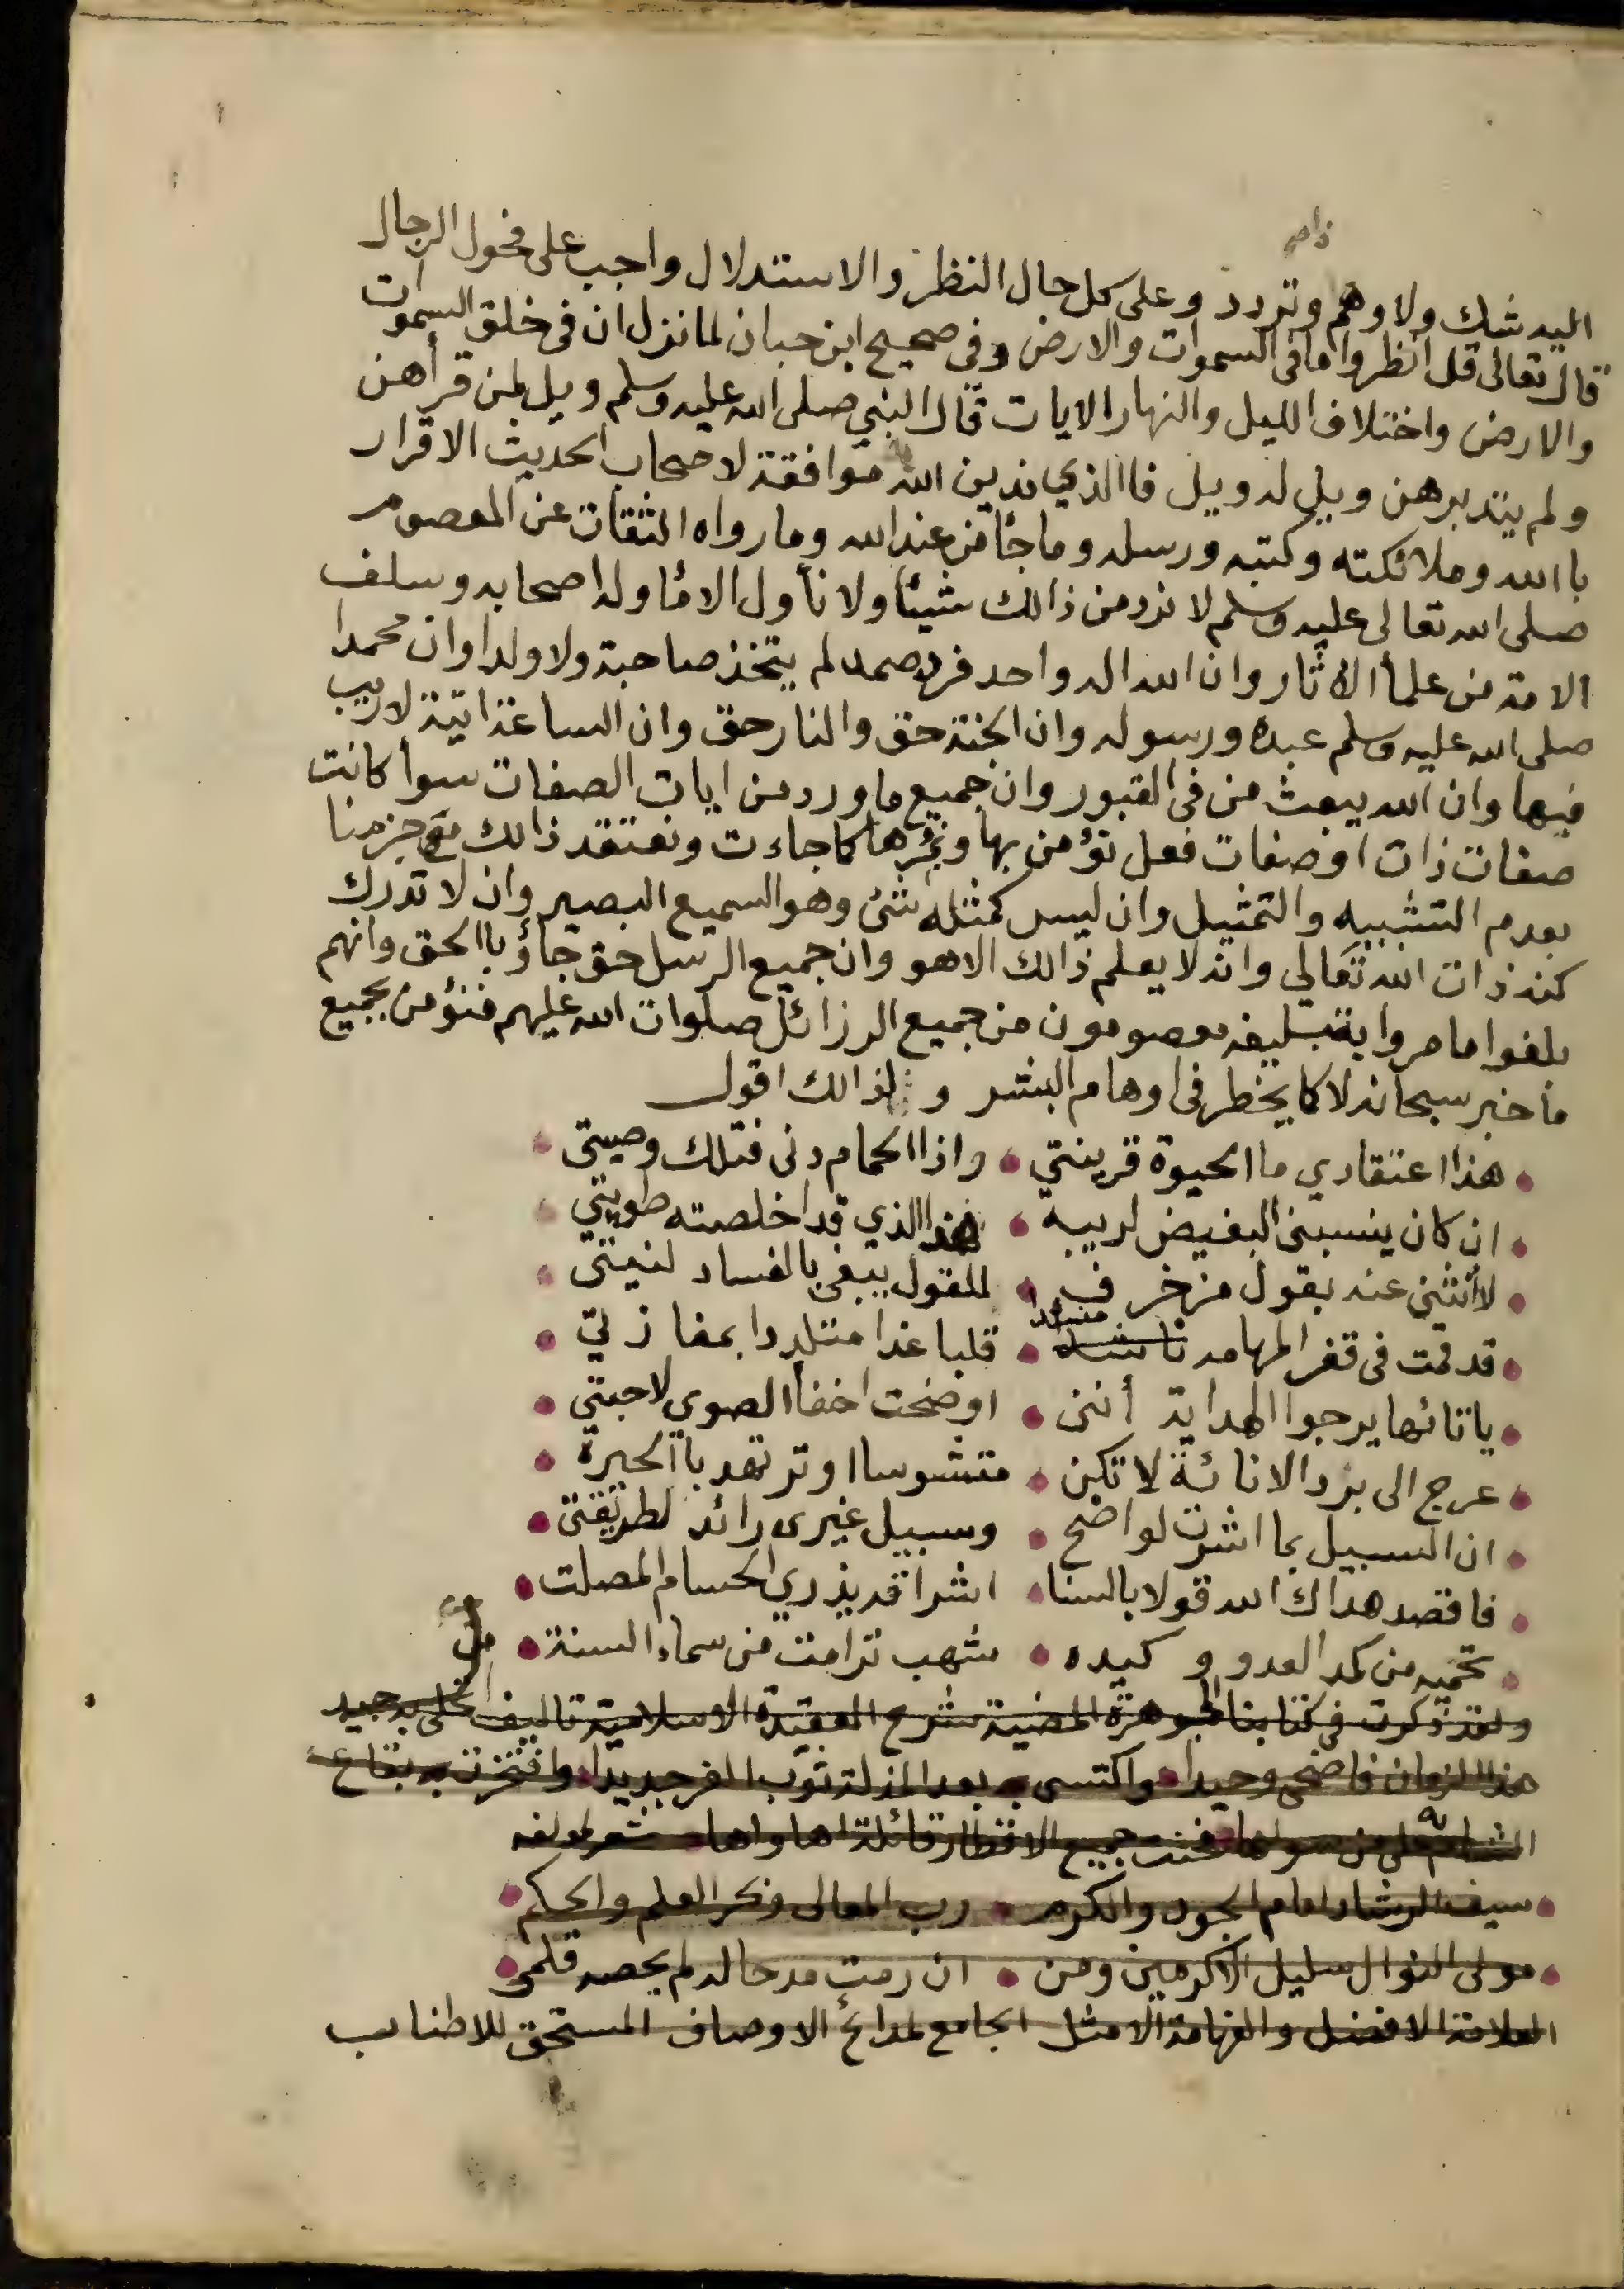 اليه شك ولا وهم وتردد وعلى كل حال النظر والاستدلال واجب على فحول الرجال
قال تعالى قل انظروا ما فى السموات والارض وفى صحيح ابن حبان لما نزل ان فى خلق السموات
والارض واختلاف الليل والنهار الايات قال النبي صلى الله عليه وسلم ويل لمن قرأهن
ولم يتدبرهن ويل له ويل فاالذي ندين الله موافقة لاصحاب الحديث الاقرار
باالله وملائكته وكتبه ورسله وما جأ من عند الله وما رواه الثقات عن المعصوم
صلى الله تعالى عليه وسلم لا نرد من ذالك شيئا ولا نأول الا مأ اوله اصحابه وسلف
الامة من علمأ الاثار وان الله اله واحد فرد صمد لم يتخذ صاحبة ولا ولدا وان محمدا
صلى الله عليه وسلم عبده ورسوله وان الجنة حق والنار حق وان الساعة اتية لا ريب
فيها وان الله يبعث من فى القبور وان جميع ما ورد من ايات الصفات سوأ كانت
صفات ذات او صفات فعل نؤمن بها ونمرها كما جاءت ونعتقد ذالك مع جزمنا
بعدم التشبيه والتمثيل وان ليس كمثله شئ وهو السميع البصير وان لا تدرك
كنه ذات الله تعالي وانه لا يعلم ذالك الا هو وان جميع الرسل حق جاؤ باالحق وانهم
بلغوا ما امروا بتبليغه معصومون من جميع الرزائل صلوات الله عليهم فنؤمن بجميع
ما خبر سبحانه لا كما يخطر فى اوهام البشر ولذالك اقول
هذا اعتقادي ما الحيوة قرينتي • واذا الحمام دنى فتلك وصيتى
ان كان ينسبنى البغيض لريبة • فهذا الذي قد اخلصته طويتي
لا أنثني عنه بقول مزخرف • للقول يبغي بالفساد لنيتى
قد قمت فى قفر المهامه منشدا • قلبا غدا متلددا بمفازتي
يا تائها يرجوا الهداية أننى • اوضحت اخفأ الصوى لاحبتي
عرج الى برد الانائة لا تكن • متشوسا او ترتهد باالحيرة
ان السبيل بما اشرت لواضح • وسبيل غيرى رائد لطريقتى
فاقصد هداك الله قولا بالسنا • اشراقه يذري الحسام المصلت
تحميه من كمد العدو وكيده • شهب ترامت من سماء السنة
ولقد ذكرت فى كتابنا الجوهرة المضية شرح العقيدة الاسلامية تاليف تحلى به جيد
هذا الزمان فاضحى وحيدا واكتسى به بعد المذلة ثوب الفخر جديدا وافتخرت به بقاع
الشام على من سواها فغنت جميع الاقطار قائلة اها واها شعر لمولفه
سيف الرشاد امام الجود والكرم • رب المعالى وفكر العلم والحكم
مولى النوال سليل الاكرمين ومن • ان رمت مدحا له لم يحصه قلمى
العلامة الافضل والفهامة الامثل الجامع لمدائح الاوصاف المستحق للاطناب